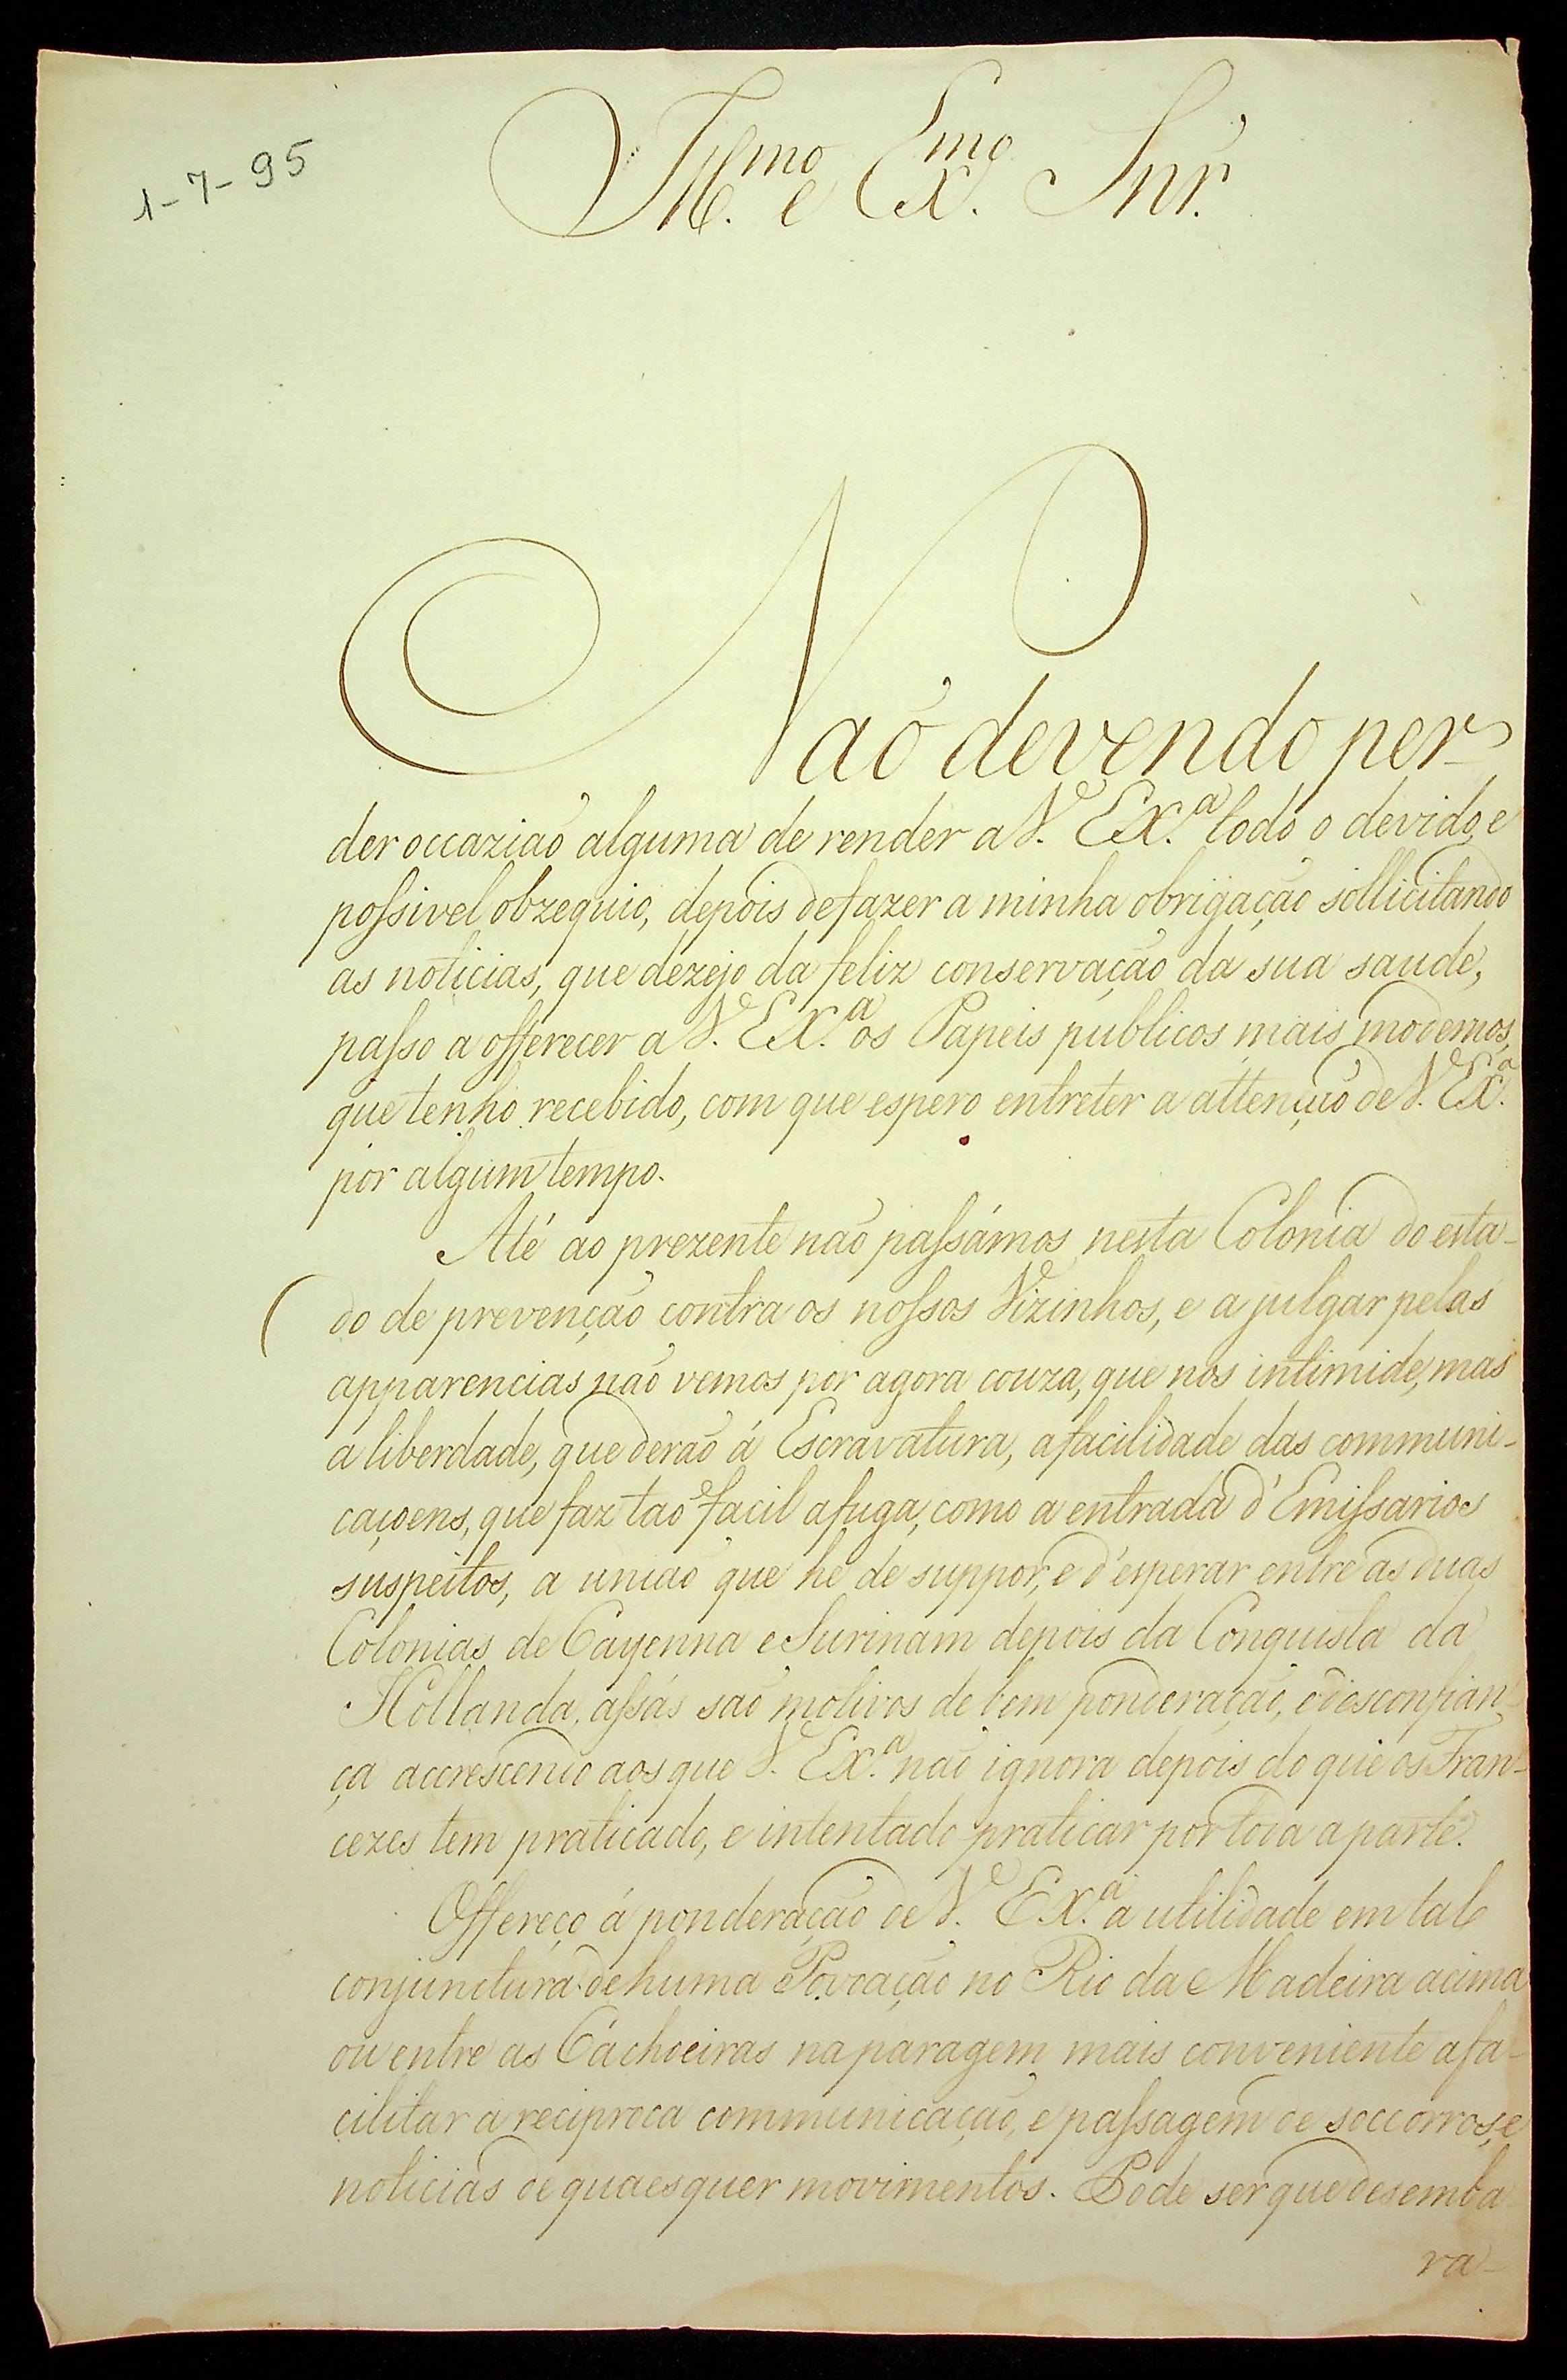 1-7-95
Ill.mo e Ex.mo Snr.
Naõ devendo per-
der occaziaõ alguma de render a V. Ex.a todo o devido, e
possivel obzequio, depois de fazer a minha obrigaçaõ sollicitando
as noticias, que dezejo da feliz conservaçaõ da sua saude,
passo a offerecer a V. Ex.a os Papeis publicos mais modernos,
que tenho recebido, com que espero entreter a attençaõ de V. Ex.a
por algum tempo.
Até ao prezente naõ passámos nesta Colonia do esta-
do de prevençaõ contra os nossos Vizinhos, e a julgar pelas
apparencias naõ vemos por agora couza, que nos intimide, mas
a liberdade, que deraõ á Escravatura, a facilidade das communi-
caçoens, que faz taõ facil a fuga, como a entrada d'Emissarios
suspeitos, a uniaõ que he de suppor, e d'esperar entre as duas
Colonias de Cayenna e Surinam depois da Conquista da
Hollanda, assás saõ motivos de bem ponderaçaõ, e desconfian-
ça accrescendo aos que V. Ex.a naõ ignora depois do que os Fran-
cezes tem praticado, e intentado praticar por toda a parte.
Offereço á ponderaçaõ de V. Ex.a a utilidade em tal
conjunctura de huma Povoaçaõ no Rio da Madeira acima
ou entre as Cachoeiras na paragem mais conveniente a fa-
cilitar a reciproca communicaçaõ, e passagem de soccorros, e
noticias de quaesquer movimentos. Pode ser que desemba-
ra-